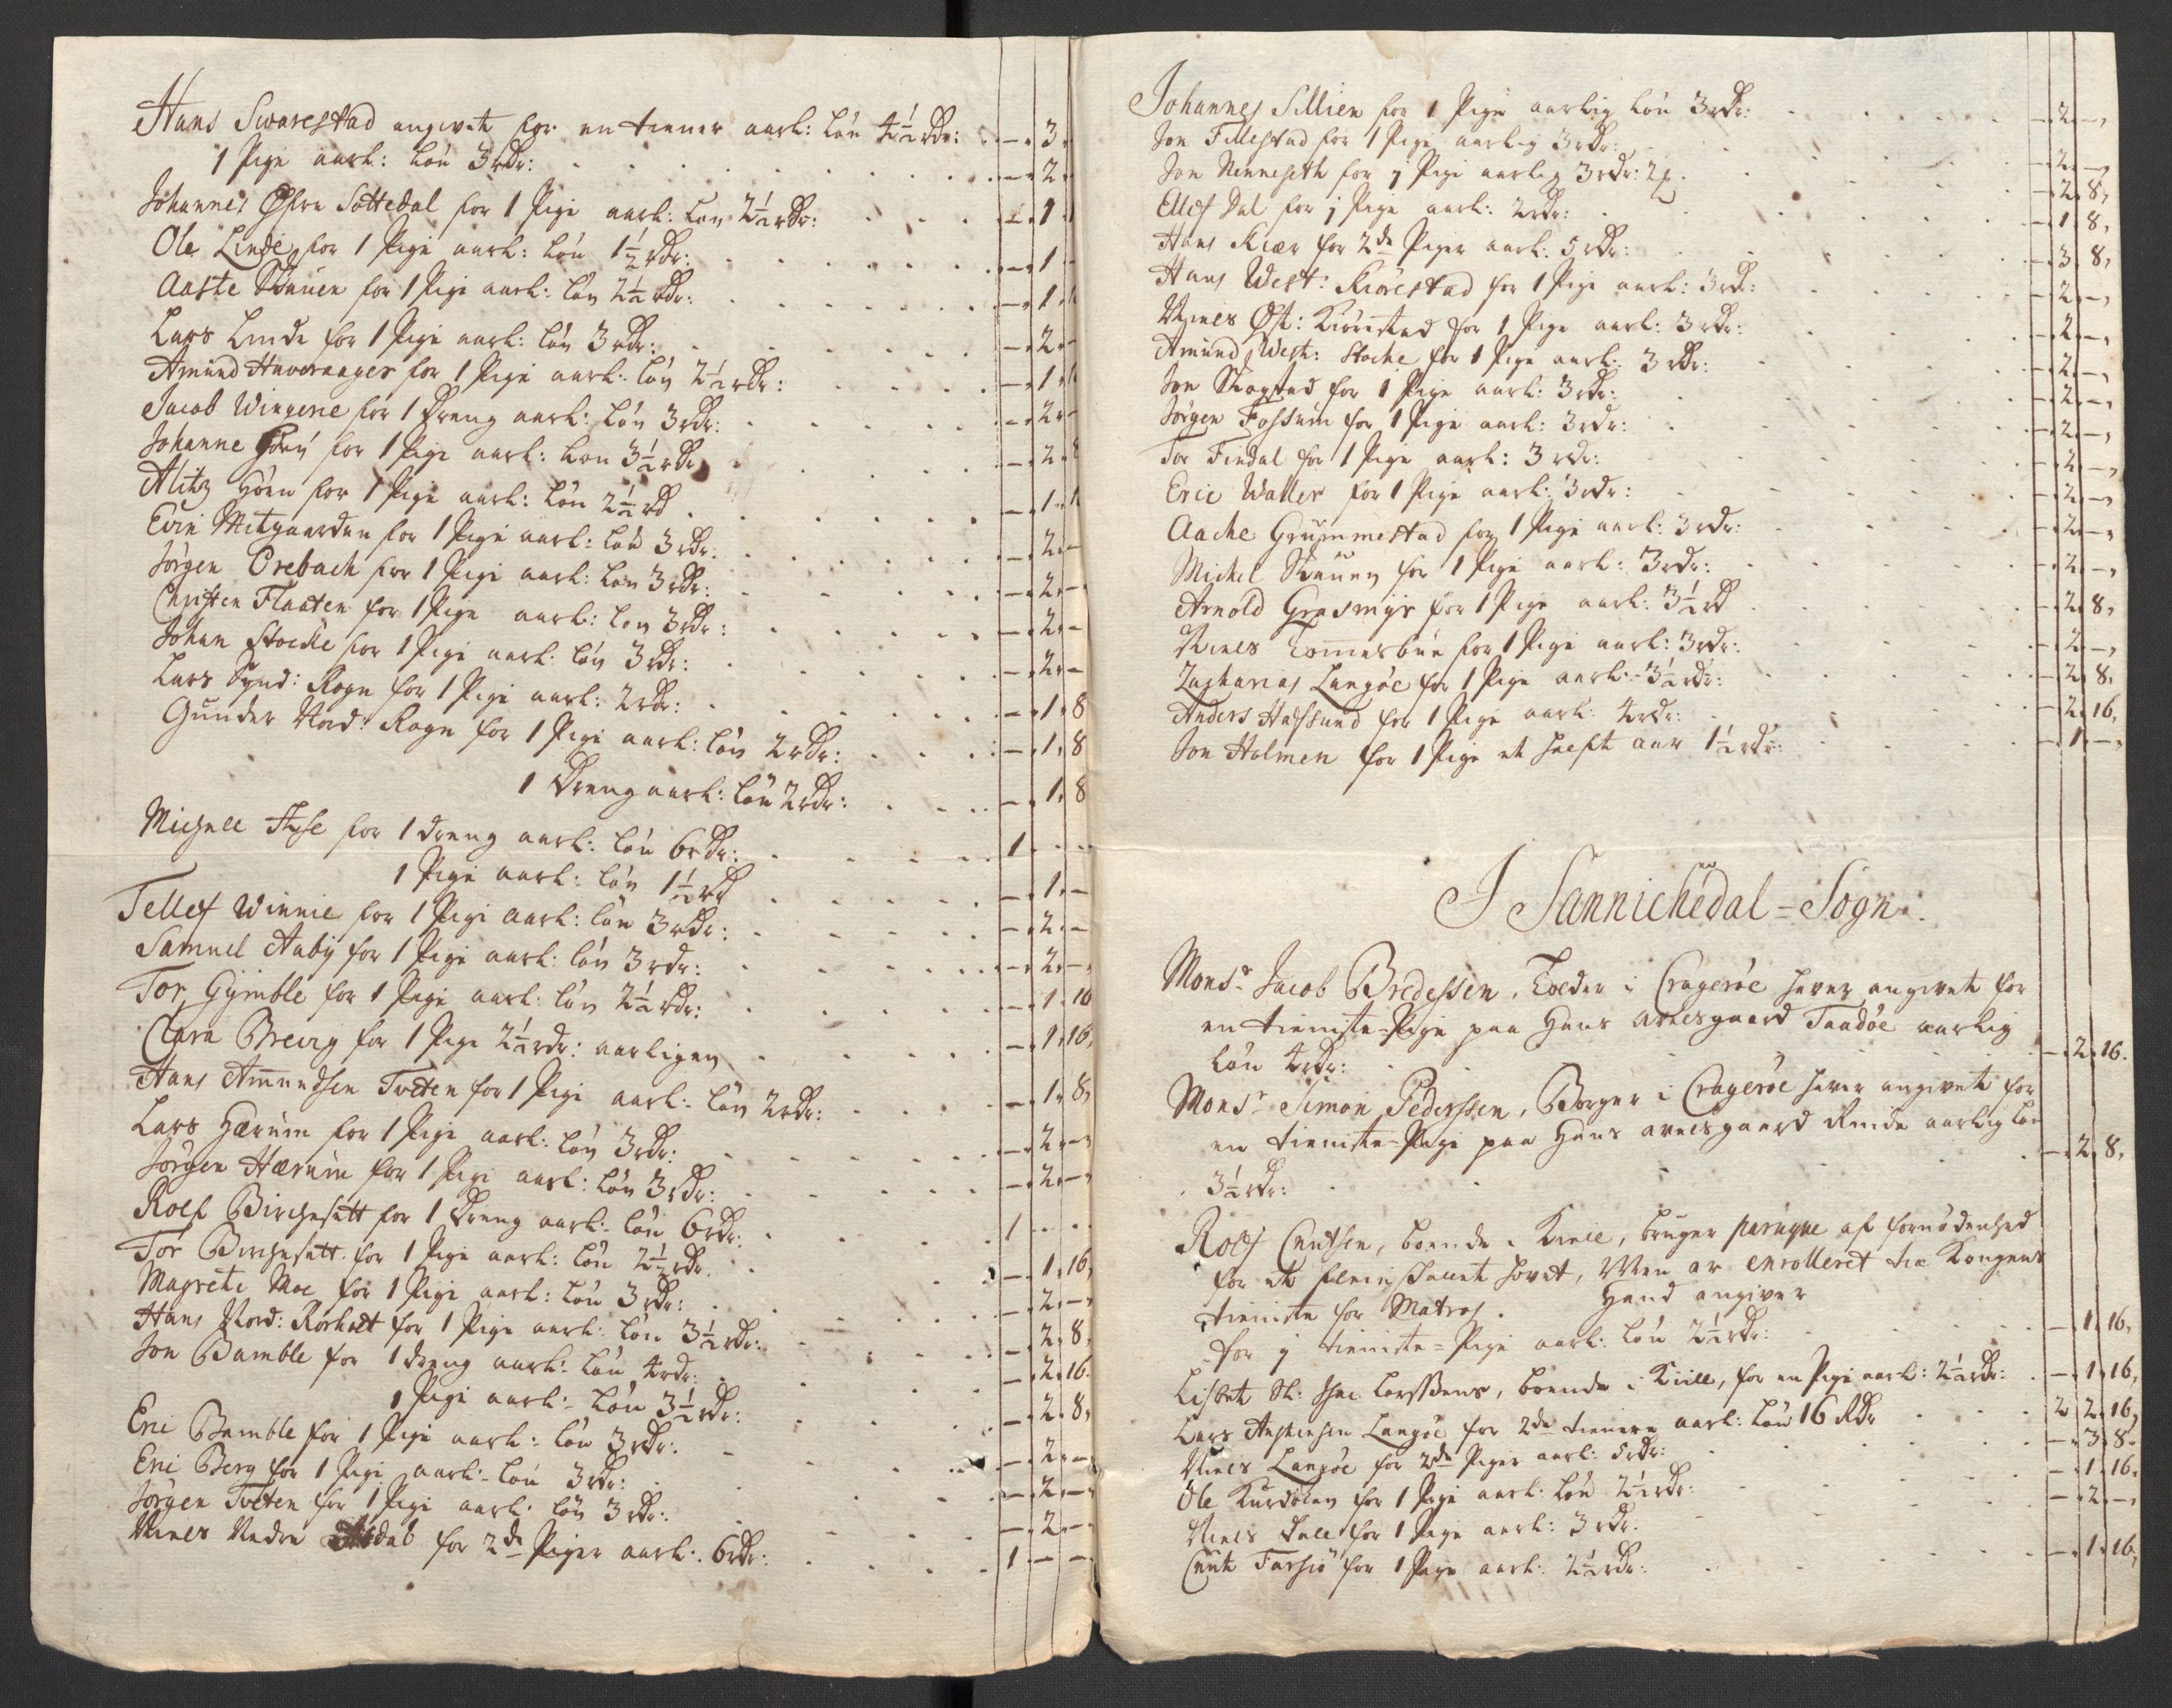 Hans Swarestad angivet for en tiener aarl: løn 4½ rdr: – 3.
1 Pige aarl: løn 3 rdr: – 2.
Johannes Øfre Sottedal for 1 Pige aarl: løn 2½ rdr: – 1.
Ole Linde for 1 Pige aarl: løn 1½ rdr: – 1 –
Aaste Skauen for 1 Pige aarl: løn 2½ rdr: – 1.
Lars Linde for 1 Pige aarl: løn 3 rdr: – 2 –
Amund Haveraager for 1 Pige aarl: løn 2½ rdr: – 1.
Jacob Wingerie for 1 Dreng aarl: løn 3 rdr: – 2 –
Johanne for 1 Pige aarl: løn 3½ rdr – 2. 8
Alitz Høen for 1 Pige aarl: løn 2½ rd – 1.
Evin Mitgaarden for 1 Pige aarl: løn 3 rdr: – 2 –
Jørgen Orebach for 1 Pige aarl: løn 3 rdr: – 2 –
Christen Flaaten for 1 Pige aarl: løn 3 rdr: – 2 –
Johan Stocke for 1 Pige aarl: løn 3 rdr: – 2 –
Lars Synd: Rogn for 1 Pige aarl: 2 rdr: – 1. 8
Gunder Nord: Rogn for 1 Pige aarl: løn 2 rdr: – 1. 8
1 Dreng aarl: løn 2 rdr: – 1. 8
Michell Aase for 1 dreng aarl: løn 6 rdr: 1 – –
1 Pige aarl: løn 1½ rd – 1. –
Tellef Winnie for 1 Pige aarl: løn 3 rdr: – 2 –
Samuel Aaby for 1 Pige aarl: løn 3 rdr: – 2. –
Tor Gymble for 1 Pige aarl: løn 2½ rdr: – 1. 16
Clara Brevig for 1 Pige 2½ rdr: aarligen – 1. 16,
Hans Amundsen Tveten for 1 Pige aarl: løn 2 rdr: – 1. 8,
Lars Hærum for 1 Pige aarl: løn 3 rdr: – 2 –
Jørgen Hærum for 1 Pige aarl: løn 3 rdr: – 2. –
Rolf Birchesett for 1 Dreng aarl: løn 6 rdr: 1 – –
Tor Birchesett for 1 Pige aarl: løn 2½ rdr. – 1. 16,
Magrete Moe for 1 Pige aarl: løn 3 rdr: – 2. –
Hans Nord: Rørholt for 1 Pige aarl: løn 3½ rdr: – 2. 8,
Jon Bamble for 1 dreng aarl: løn 4 rdr: – 2. 16.
1 Pige aarl: løn 3½ rdr: – 2. 8,
Eric Bamble for 1 Pige aarl: løn 3 rdr: – 2. –
Eric Berg for 1 Pige aarl: løn 3 rdr: – 2. –
Jørgen Tveten for 1 Pige aarl: løn 3 rdr: – 2. –
Niels Nedre for 2de Piger aarl: 6 rdr: 1 – –
Johannes Sillien for 1 Pige aarlig løn 3 rdr: – 2 –,
Jon Tillestad for 1 Pige aarlig 3 rdr: – 2 –,
Jon Nenneseth for j Pige aarlig 3 rdr: – 2. 8,
Ellef Dal for j Pige aarl: 2 rdr: – 1. 8,
Hans Kiær for 2de Piger aarl: 5 rdr: – 3. 8,
Hans West: Kiørestad for 1 Pige aarl: 3 rd: – 2 –,
Niels Øst: Kiørestad for 1 Pige aarl: 3 rdr: – 2 –,
Amund West: Stocke for 1 Pige aarl: 3 rdr: – 2 –,
Jon Skogstad for 1 Pige aarl: 3 rdr: – 2 –,
Jørgen Fossum for 1 Pige aarl: 3 rdr: – 2 –,
Tor Findal for 1 Pige aarl: 3 rdr: – 2 –,
Eric Waller for 1 Pige aarl: 3 rdr: – 2 –,
Aache Grummestad for 1 Pige aarl: 3 rdr: – 2 –,
Michel Skauen for 1 Pige aarl: 3 rdr: – 2 –,
Arnold Grasmyr for 1 Pige aarl: 3½ rd – 2. 8,
Niels Tomesbue for 1 Pige aarl: 3 rdr: – 2 –,
Zacharias Langøe for 1 Pige aarl: 3½ rdr: – 2. 8,
Anders Hafsund for 1 Pige aarl: 4 rdr: – 2. 16,
Jon Holmen for 1 Pige et halft aar 1½ rdr: – 1. –,
I Sannichedal = Sogn.
Monsr Jacob Bredessen, Tolder i Cragerøe haver angivet for
en tieniste-Pige paa Hans avelsgaard Taadøe aarlig
løn 4 rdr: – 2. 16.
Monsr Simon Pederssen, Borger i Cragerøe haver angivet for
en tieniste-Pige paa Hans avelsgaard Rinde aarlig løn
3½ rdr: – 2. 8,
Rolf Cnutsen, boende i Kiele, bruger paruque af fornødenhed
for et hoved, Men er enrolleret til Kongens
tieniste for Matros. Hand angiver
for j tieniste-Pige aarl: løn 2½ rdr: – 1. 16,
Lisbet Sl: Lorssens, boende i Kiile, for en Pige aarl: 2½ rdr: – 1. 16,
Lars Langøe for 2de tienere aarl: løn 16 Rdr 2 2. 16,
Niels Langøe for 2de Piger aarl: 5 rdr: – 3. 8.
Ole Kurdølen for 1 Pige aarl: løn 2½ rdr: – 1. 16.
Niels Dalle for 1 Pige aarl: 3 rdr. – 2 –,
Cnut Farsiø for 1 Pige aarl: 2½ rdr: – 1. 16,